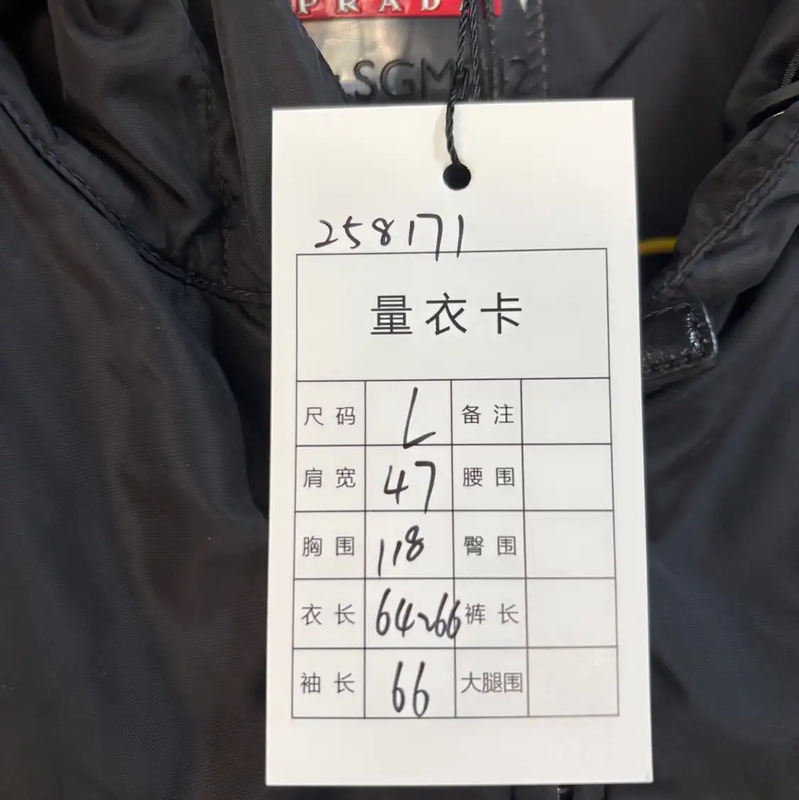 PRADA
SGM
258171
量衣卡
尺码 L 备注
肩宽 47 腰围
胸围 118 臀围
衣长 64~66 裤长
袖长 66 大腿围